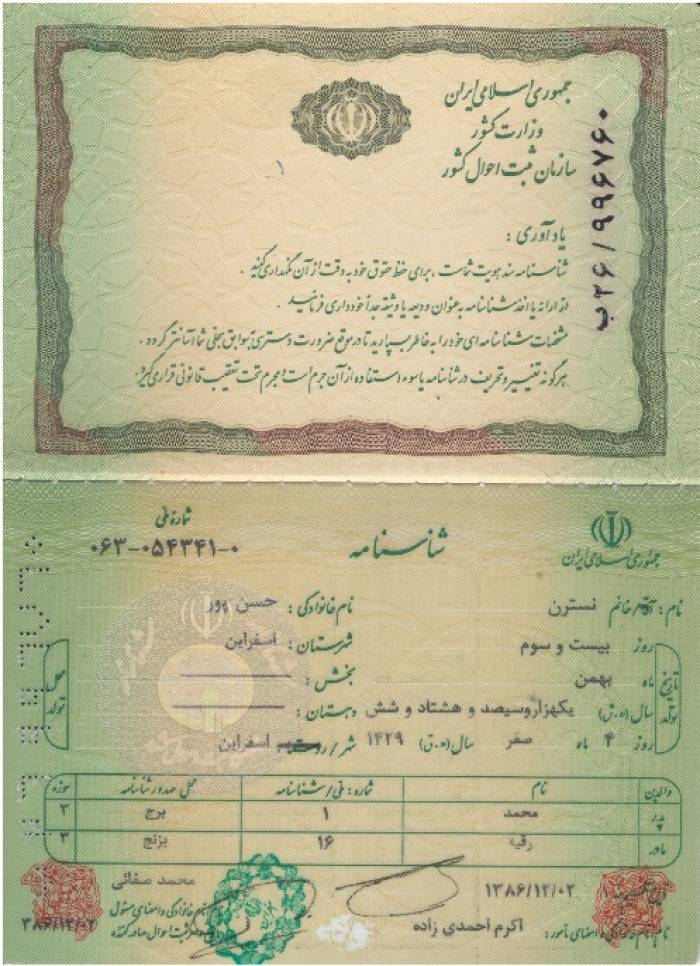 جمهوری اسلامی ایران
وزارت کشور
سازمان ثبت احوال کشور
ب۲۶/۹۹۶۷۶۰
یادآوری :
شناسنامه سند هویت شماست ، برای حفظ حقوق خود به دقت از آن نگهداری کنید .
از ارائه یا اخذ شناسنامه به عنوان ودیعه یا وثیقه جداً خودداری فرمائید .
مشخصات شناسنامه ای خود را به خاطر بسپارید تا در موقع ضرورت دسترسی به سوابق سجلی شما آسانتر گردد .
هرگونه تغییر و تحریف در شناسنامه یا سوء استفاده از آن جرم است و مجرم تحت تعقیب قانونی قرار می گیرد .
جمهوری اسلامی ایران
شناسنامه
شماره ملی
۰۶۳-۰۵۴۳۴۱-۰
نام : خانم نسترن
نام خانوادگی : حسن پور
تاریخ تولد
روز بیست و سوم
ماه بهمن
سال (ه.ش) یکهزاروسیصد و هشتاد و شش
روز ۴ ماه صفر سال (ه.ق) ۱۴۲۹
محل تولد
شهرستان : اسفراین
بخش :
دهستان :
شهر / اسفراین
والدین نام شماره : ملی / شناسنامه محل صدور شناسنامه حوزه
پدر محمد ۱ برج ۳
مادر رقیه ۱۶ بزنج ۳
۱۳۸۶/۱۲/۰۲
نام ، نام خانوادگی و امضای مأمور : اکرم احمدی زاده
محمد صفائی
نام خانوادگی و امضای مسئول
ثبت احوال صادر کننده
۱۳۸۶/۱۲/۰۲